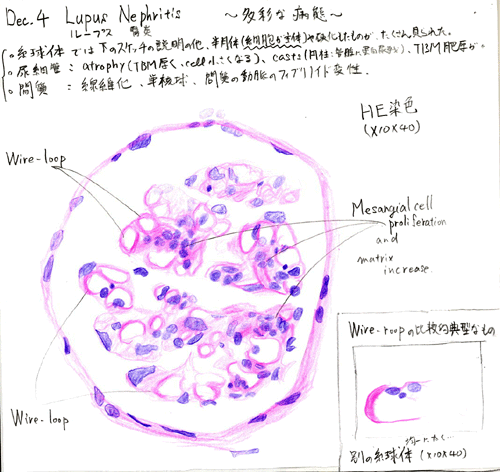 Dec. 4 Lupus Nephritis ～多彩な病態～
ループス 腎炎
○糸球体では下のスケッチの説明の他、半月体(細胞が主体)や硬化したものが、たくさん見られた。
○尿細管: atrophy (TBM厚く、cell小さくなる)、casts(円柱: )、TBM肥厚が。
○間質: 線維化、単核球、間質の動脈のフィブリノイド変性.
HE染色
(×10×40)
Wire-loop
Mesangial cell
proliferation
and
matrix
increase.
Wire-loopの比較的典型なもの
Wire-loop
別の糸球体 (×10×40)